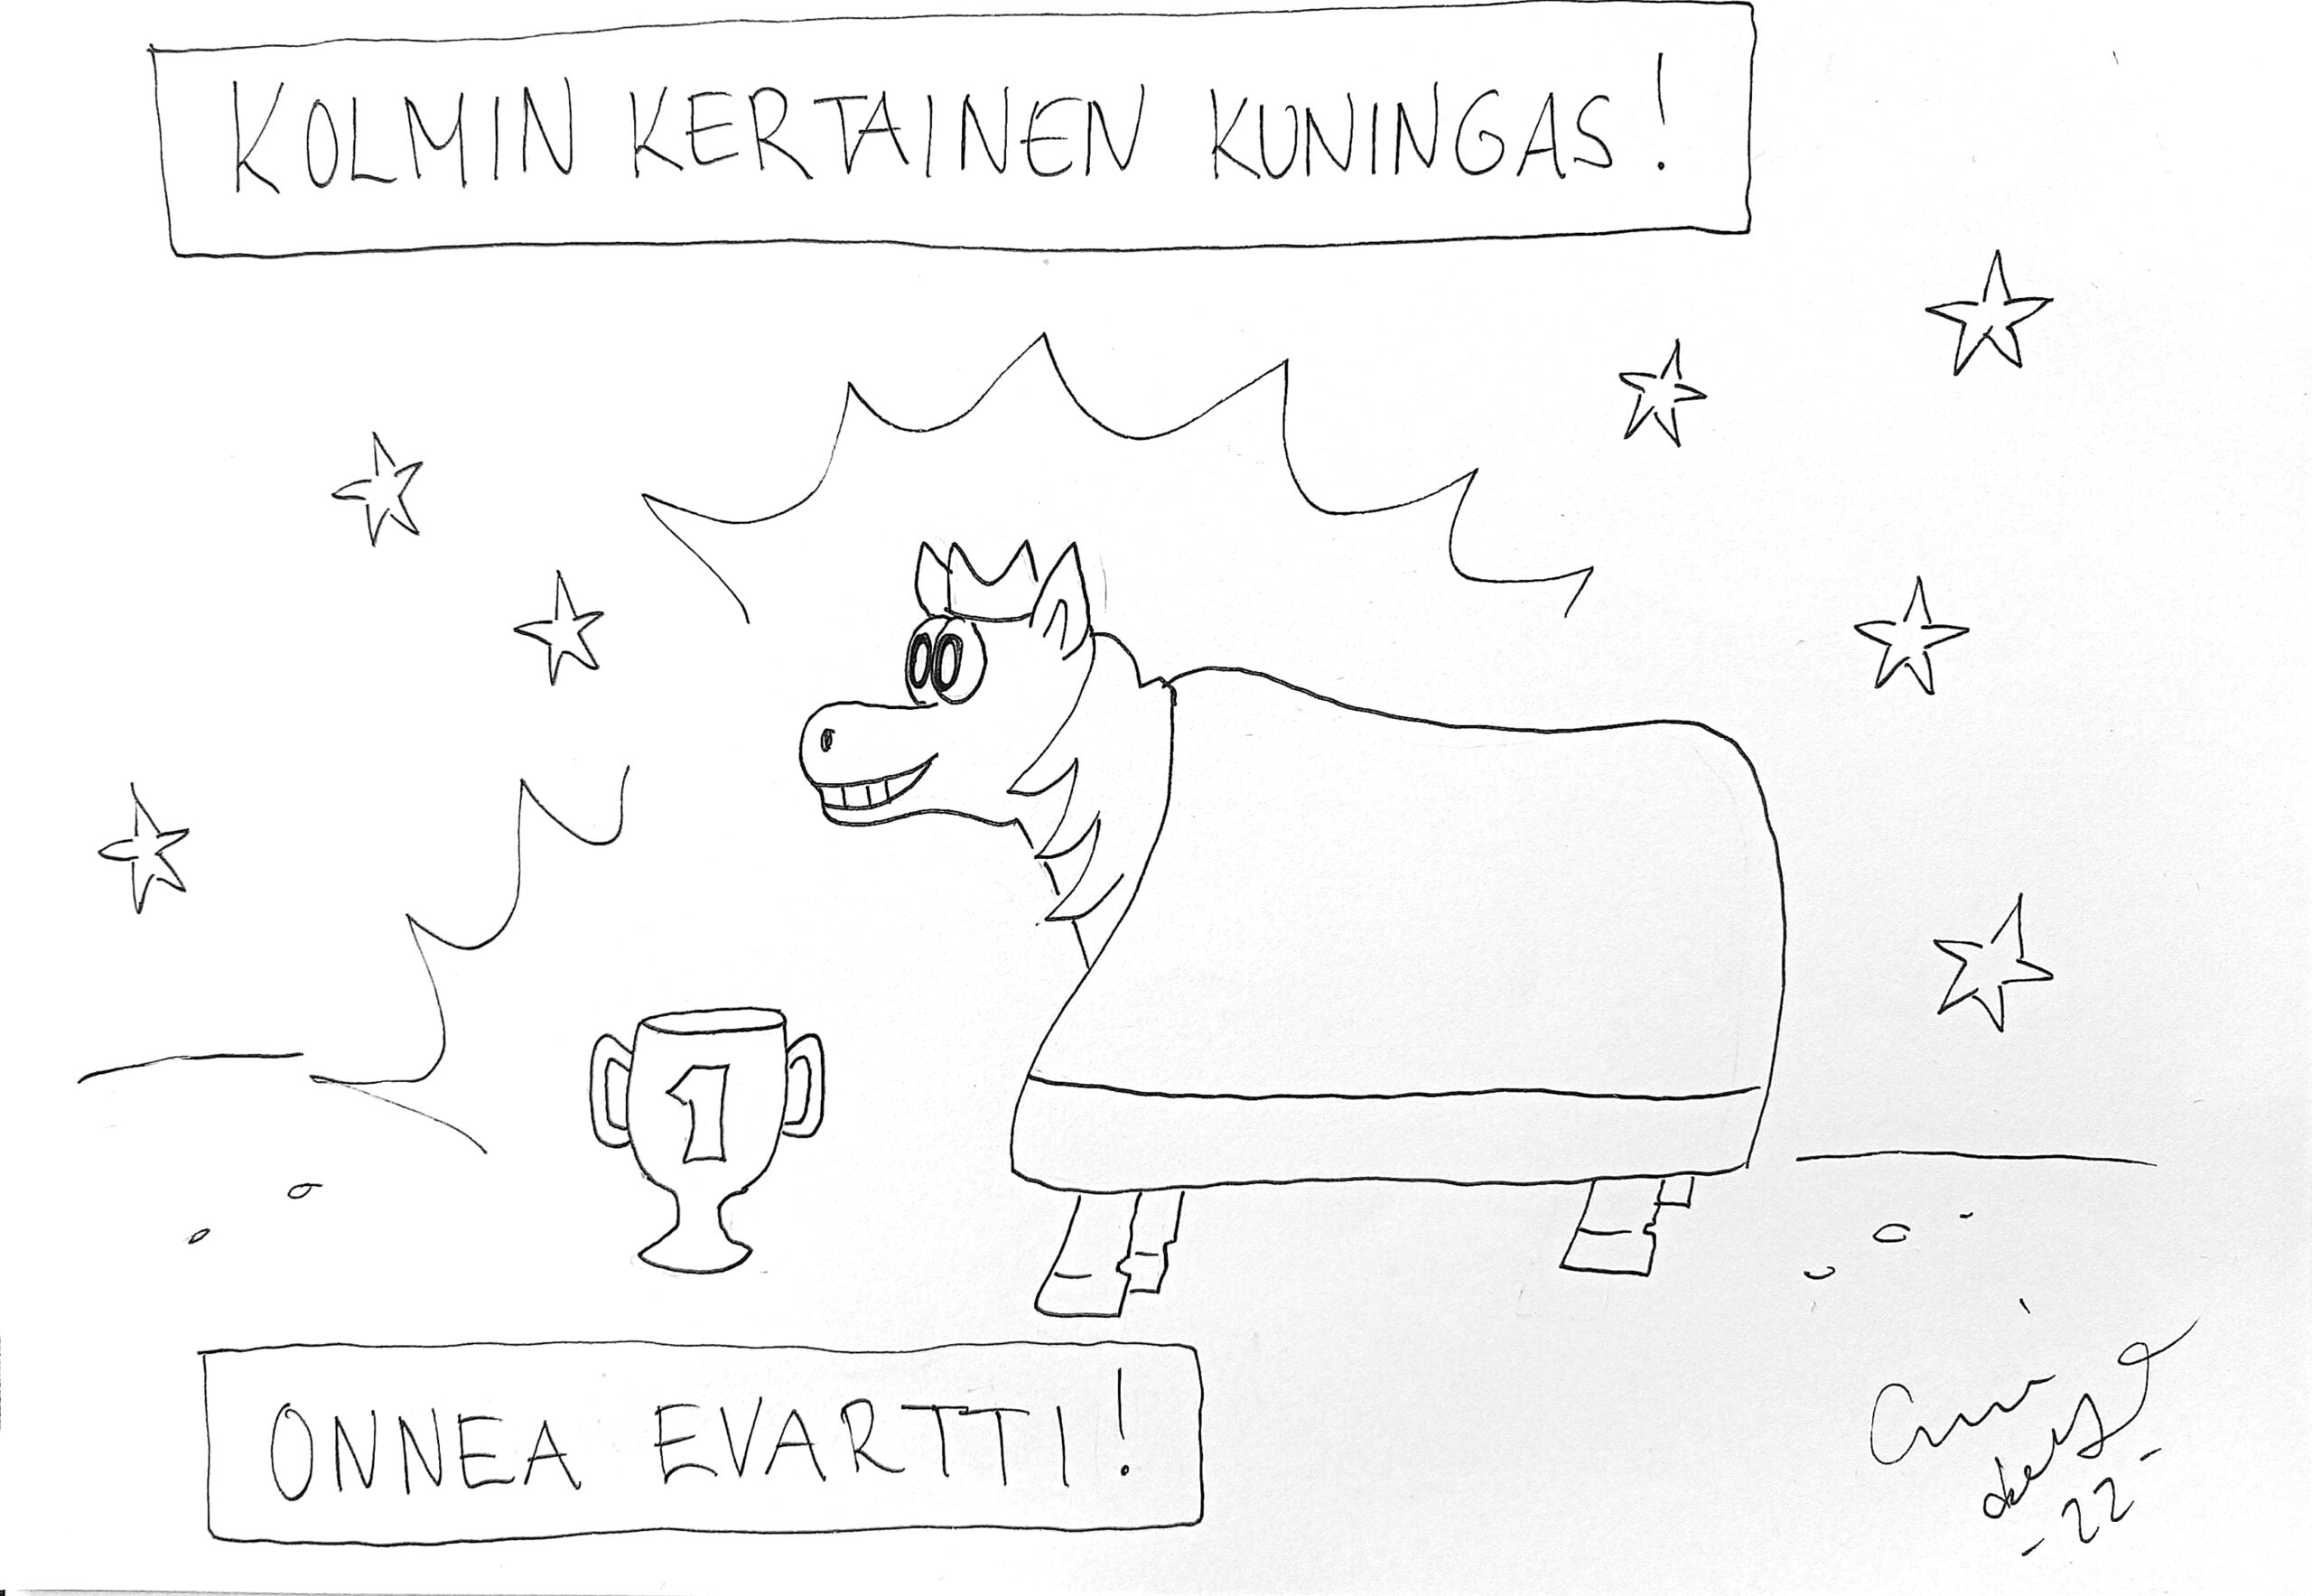 KOLMIN KERTAINEN KUNINGAS!
1
ONNEA EVARTTI!
-22-